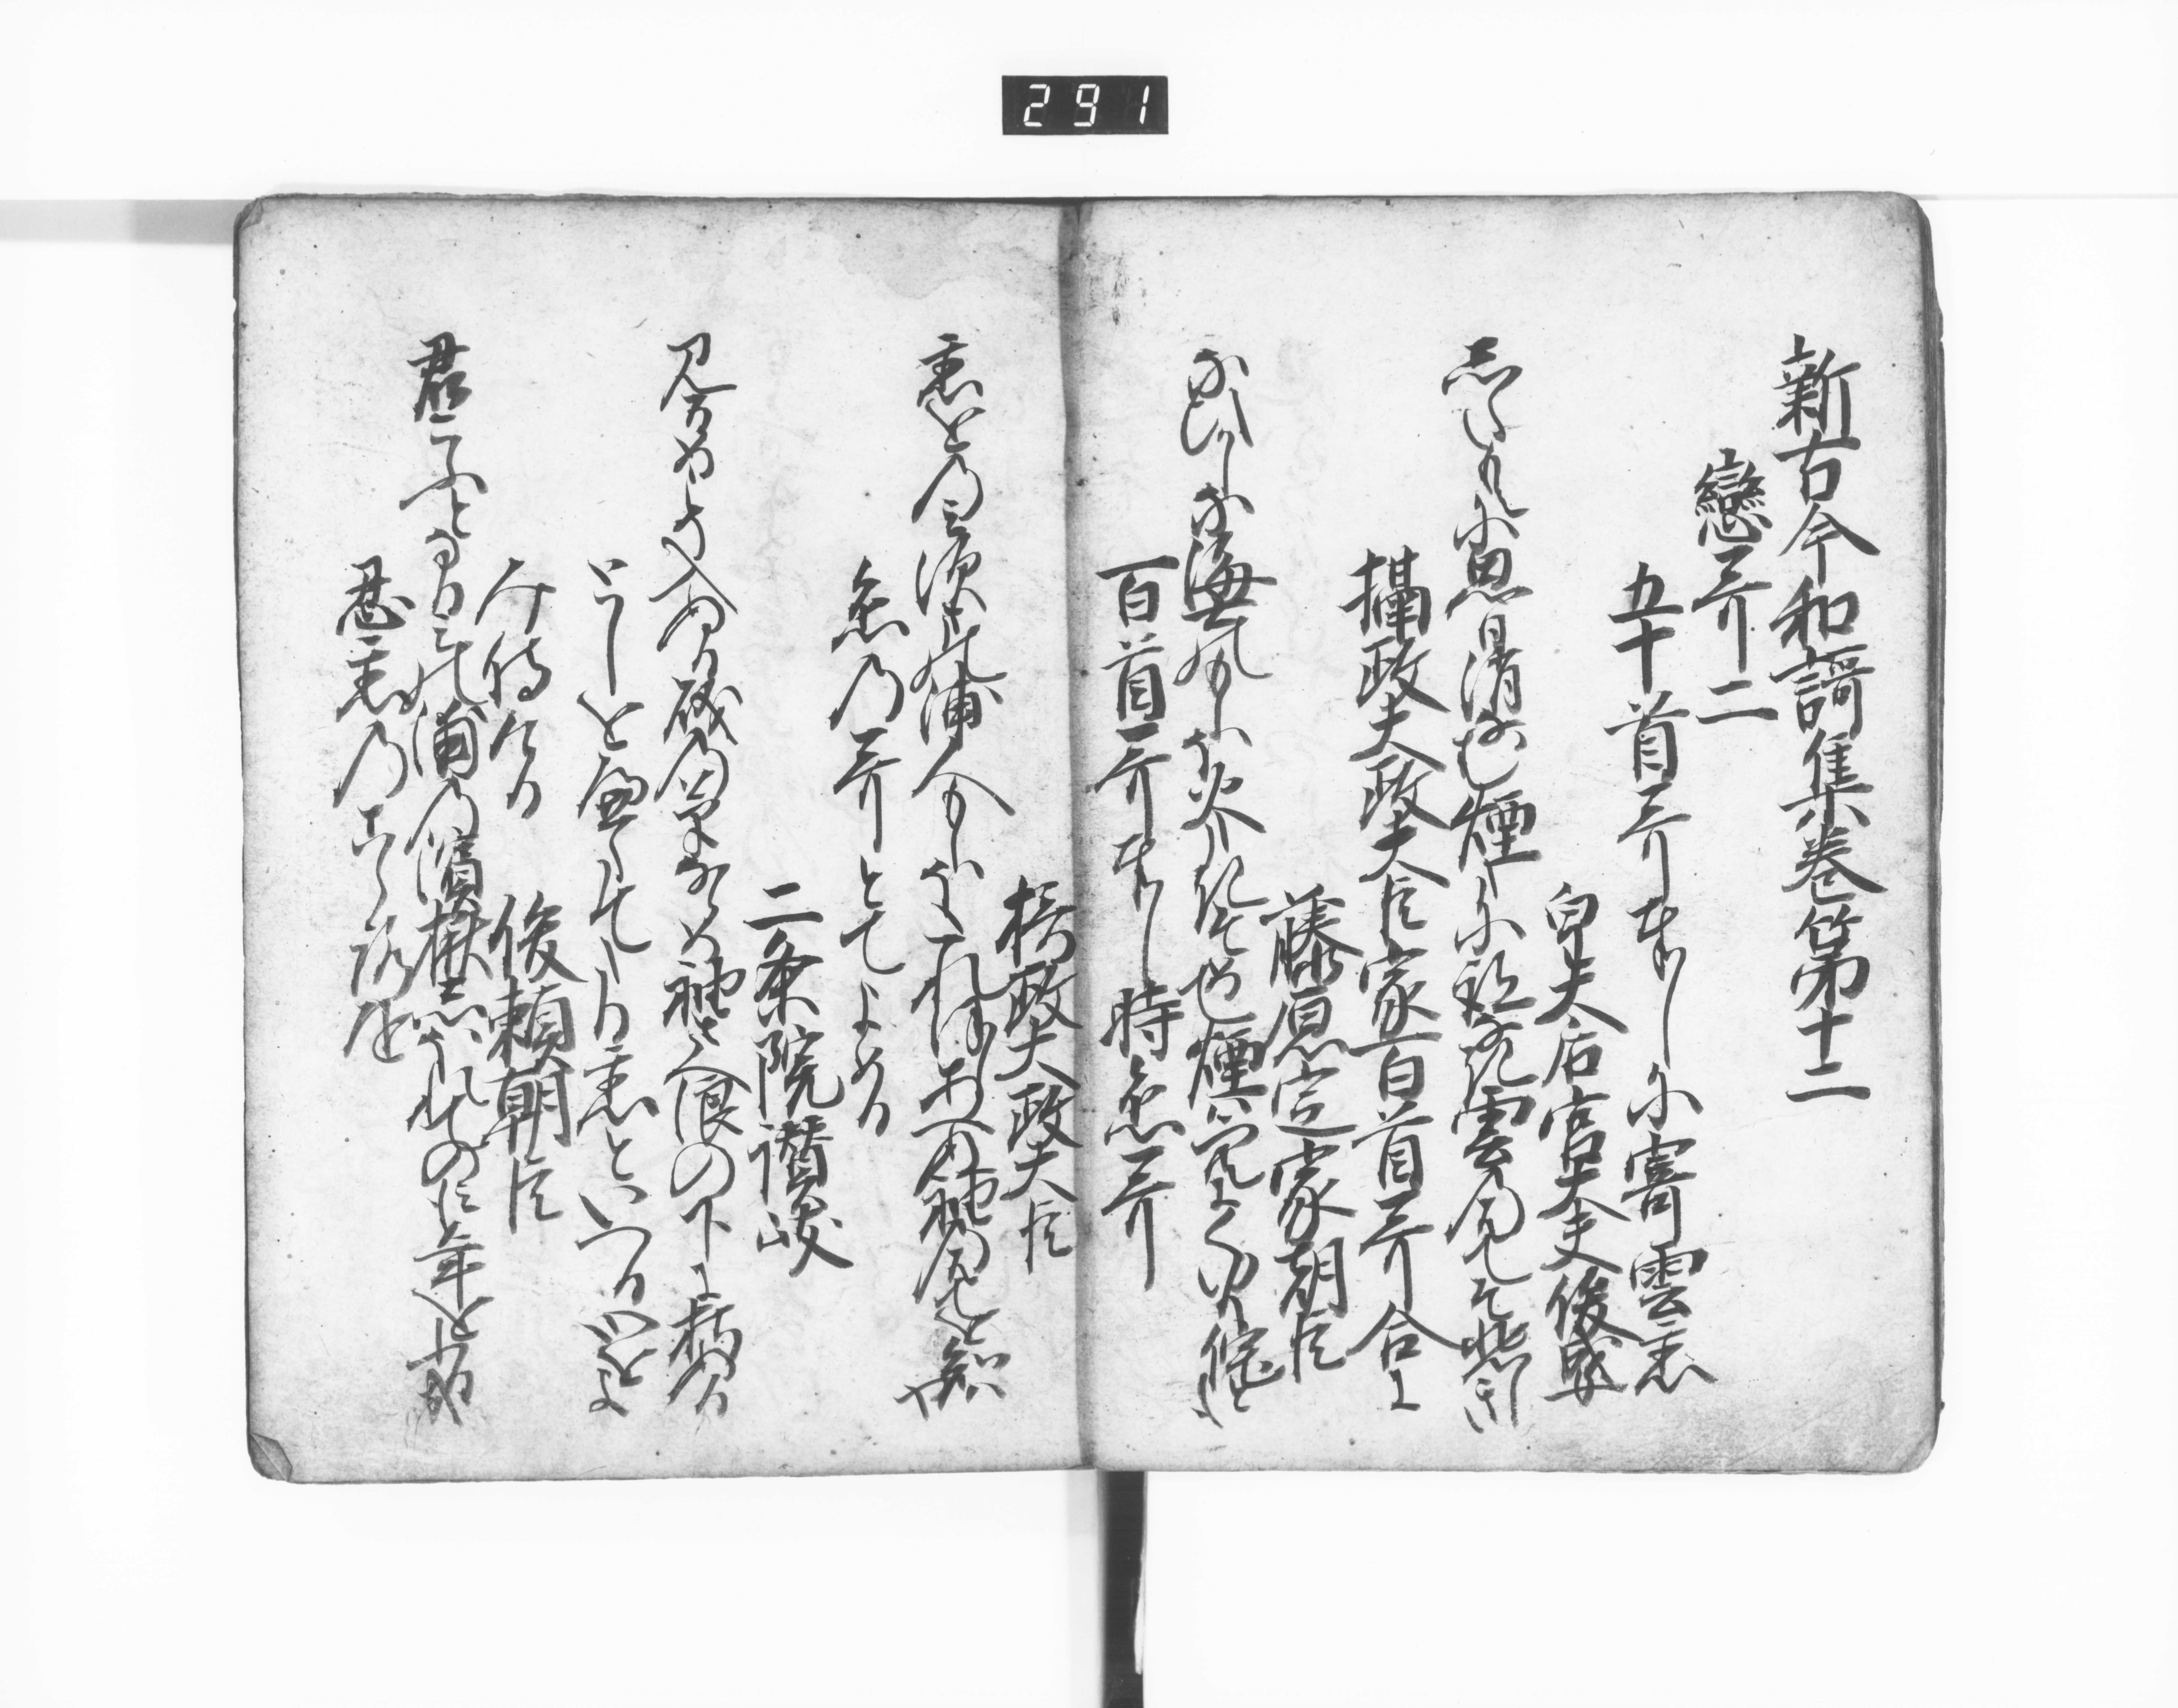 291
新古今和謌集巻第十二
戀哥二
五十首哥奉しに寄雲恋
皇太后宮大夫俊成女
したもえに思消なむ煙たに跡なき雲の
摂政太政大臣家百首哥合に
藤原定家朝臣
なひかしな海人のもしほ火たきそめて煙は空にくゆり侘とも
百首哥奉し時恋哥
摂政太政大臣
恋をのみ須まの浦人もしほたれほしあへぬ袖のはてを知はや
恋乃哥とてよめる
二条院讃岐
みるめこそ入ぬる礒の草ならめ袖さへ浪の下に朽ぬる
としを経たる恋といへる心をよ
み侍ける
俊頼朝臣
君こふとなるみの浦の濱楸しほれてのみも年をふる哉
忍恋のこゝろを